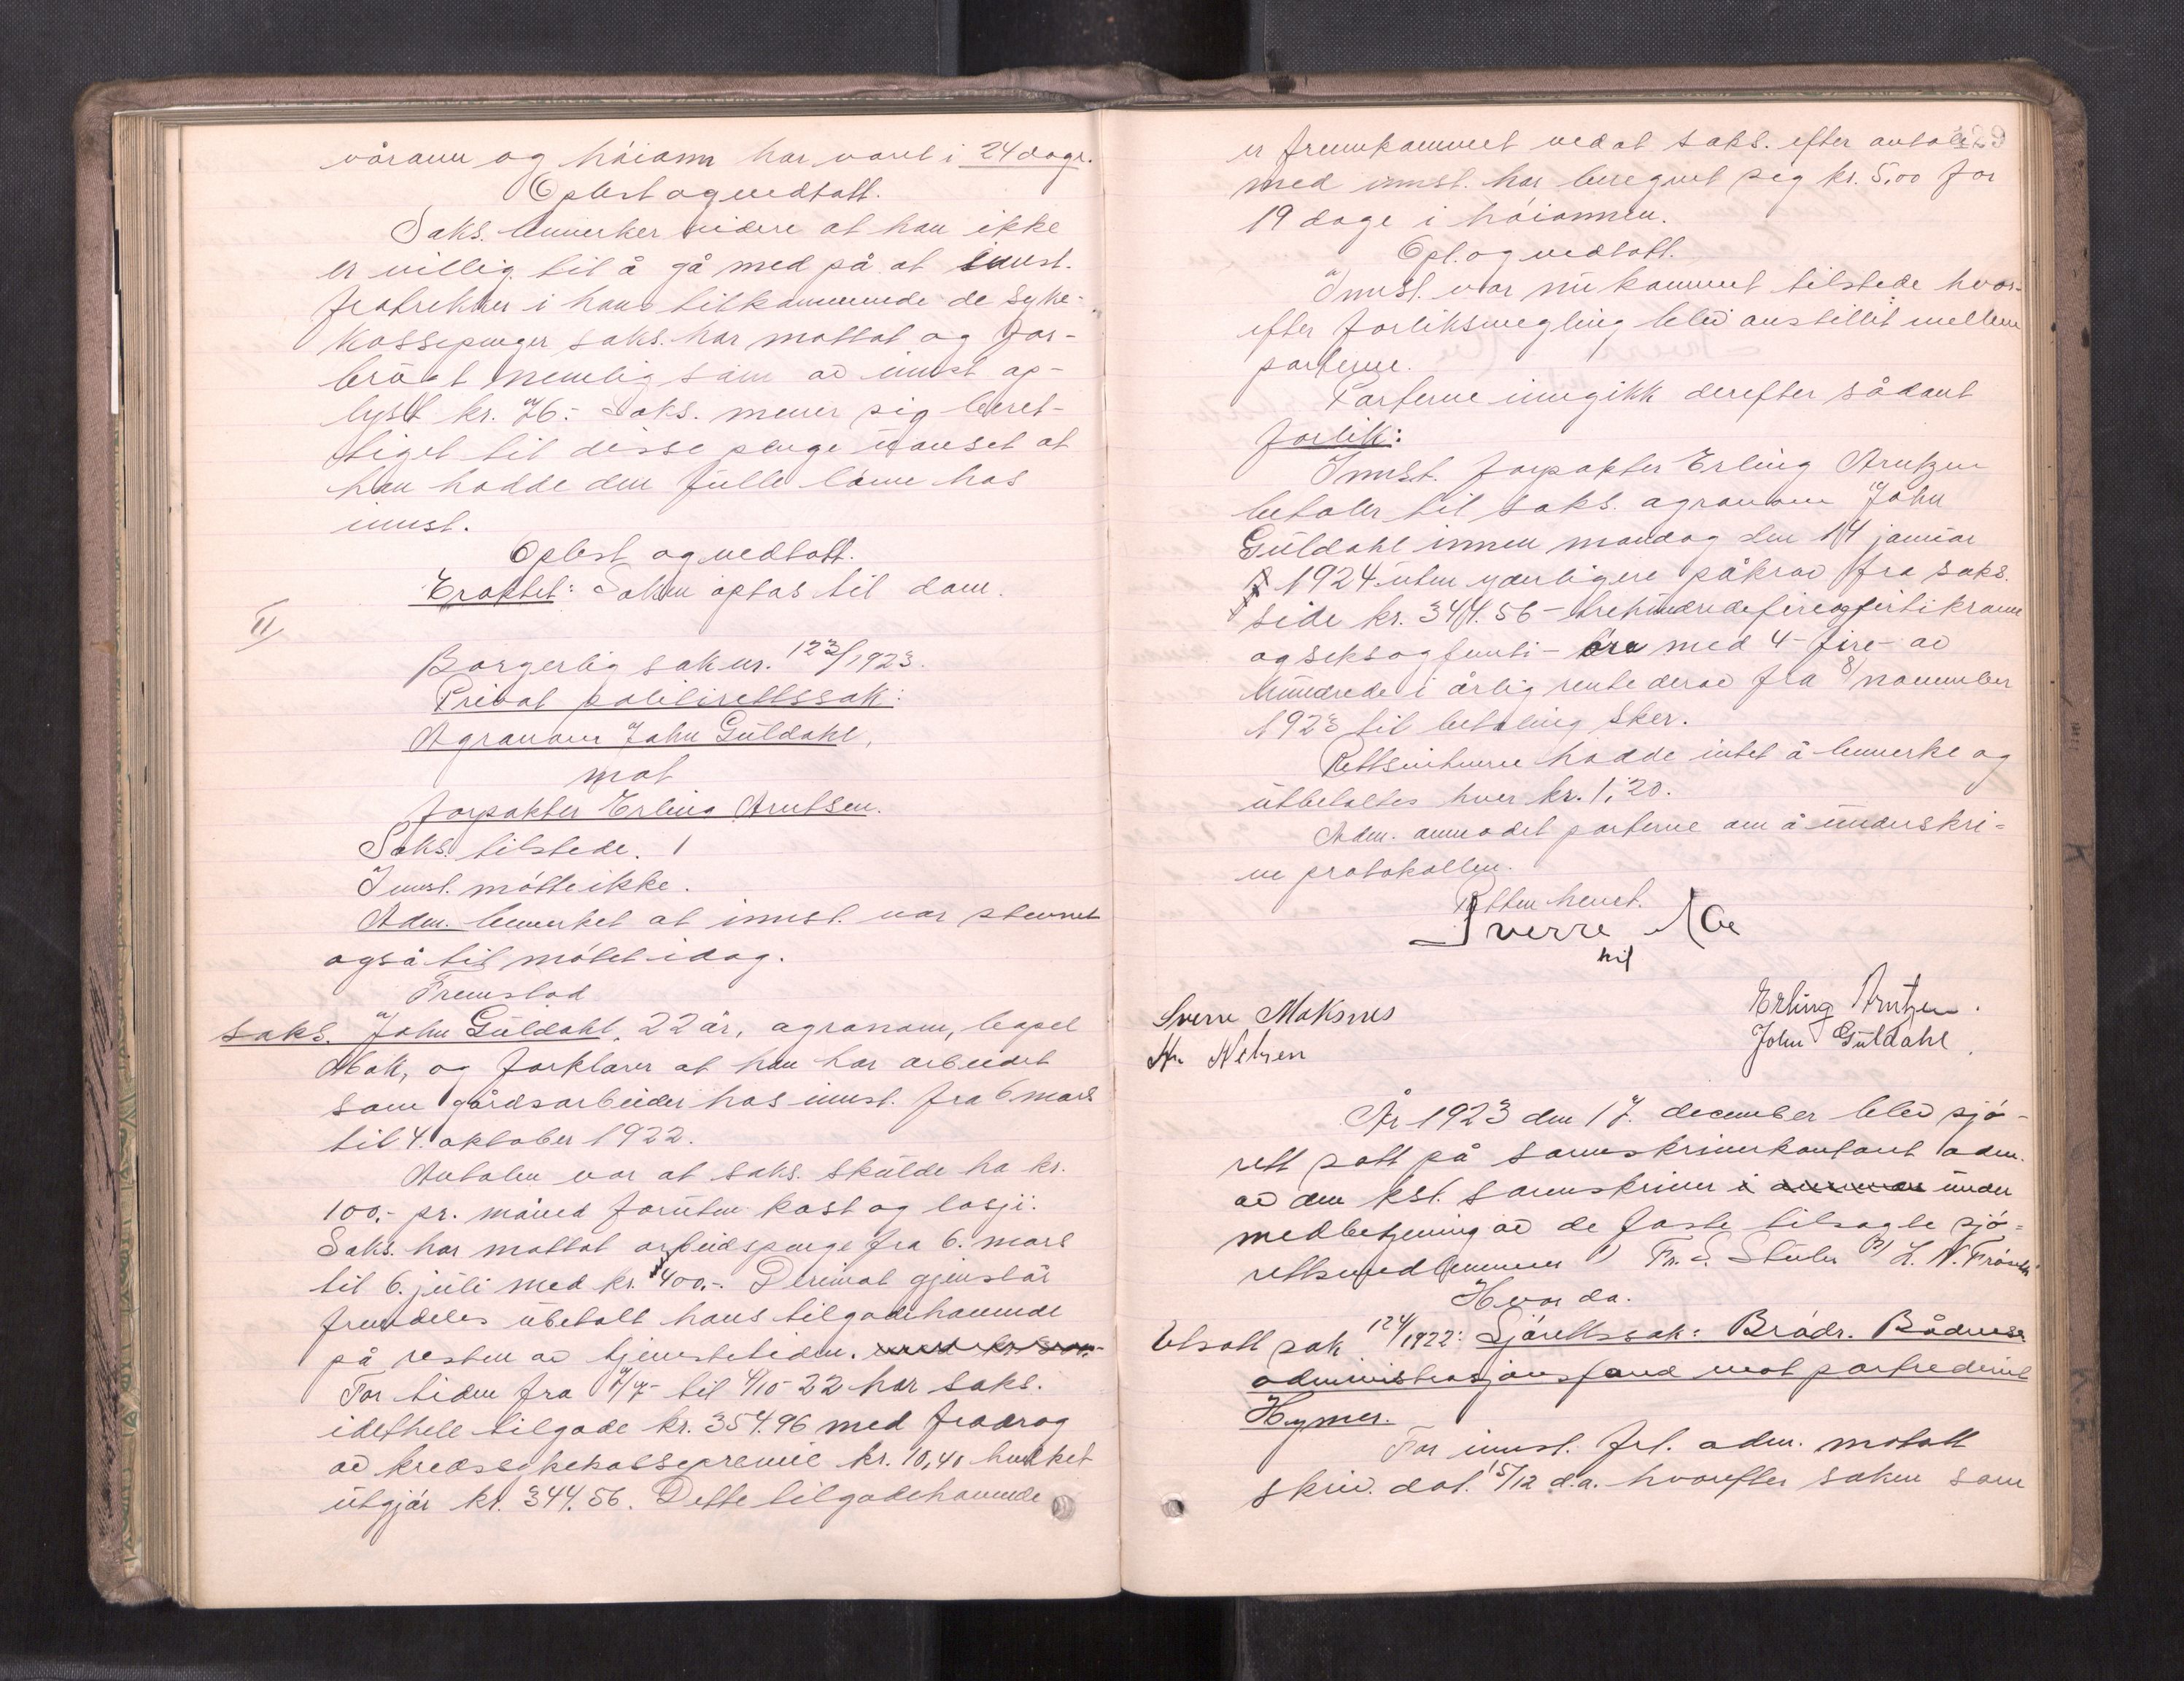 våronn og höionn har vart i 24 dage.
Oplest og vedtatt.
Saks. bemerker videre at han ikke
er villig til å gå med på at innst.
fratrekker i hans tilkommende de syke-
kassepenger saks. har mottat og for-
brukt nemlig som av innst. op-
lyst kr. 76.- Saks. mener sig beret-
tiget til disse penge uanset at
han hadde den fulle lönn hos
innst.
Oplest og vedtatt.
Eraktet: Saken optas til dom.
II
Borgerlig sak nr. 123/1923.
Privat politirettssak:
Agronom John Guldahl,
mot
forpakter Erling Arntsen.
Saks. tilstede.
Innst. mötte ikke.
Adm. bemerket at innst. var stevnet
også til mötet idag.
Fremstod
saks. John Guldahl, 22 år, agronom, bopel
Mak, og forklarer at han har arbeidet
som gårdsarbeider hos innst. fra 6 mars
til 4. oktober 1922.
Avtalen var at saks. skulde ha kr.
100.- pr. måned foruten kost og losji.
Saks. har mottat arbeidspenge fra 6. mars
til 6. juli med kr. 400.-. Derimot gjenstår
fremdeles ubetalt hans tilgodehavende
på resten av tjenestetiden.
For tiden fra 7/7- til 4/10-22 har saks.
idethele tilgode kr. 354.96 med fradrag
av kredssykekassepremie kr. 10,40 hvilket
utgjör kr. 344.56. Dette tilgodehavende
329
er fremkommet ved at saks. efter avtale
med innst. har beregnet seg kr. 5,00 for
19 dage i höionnen.
Opl. og vedtatt.
Innst. var nu kommet tilstede hvor-
efter forliksmegling blev anstillet mellem
parterne.
Parterne inngikk derefter sådant
forlik:
Innst. forpakter Erling Arntzen
betaler til saks. agronom John
Guldahl innen mandag den 14 januar
1924 uten yderligere påkrav fra saks.
side kr. 344.56 - trehundredefireogførtikroner
og seksogfemti - öre med 4 - fire - av
hundrede i årlig rente derav fra 8/ november
1923 til betaling sker.
Rettsvitnerne hadde intet å bemerke og
utbetaltes hver kr. 1,20.
Adm. anmodet parterne om å underskri-
ve protokollen.
Retten hevet.
Sverre Moe
Sverre Moksnes
Erling Arntzen.
John Guldahl.
Nilsen
År 1923 den 17. december blev sjö-
rett satt på sorenskriverkontoret adm.
av den kst. sorenskriver under
medbetjening av de faste tilsagte sjö-
rettsmedlemmer 1) Fr. S. 2) L. N.
Hvor da.
Utsatt sak 124/1922: Sjörettssak: Brödr.
administrasjonsfond mot partrederiet
Hymer.
For innst. frl. adm. motatt
skriv. dat. 15/12 d.a. hvorefter saken som